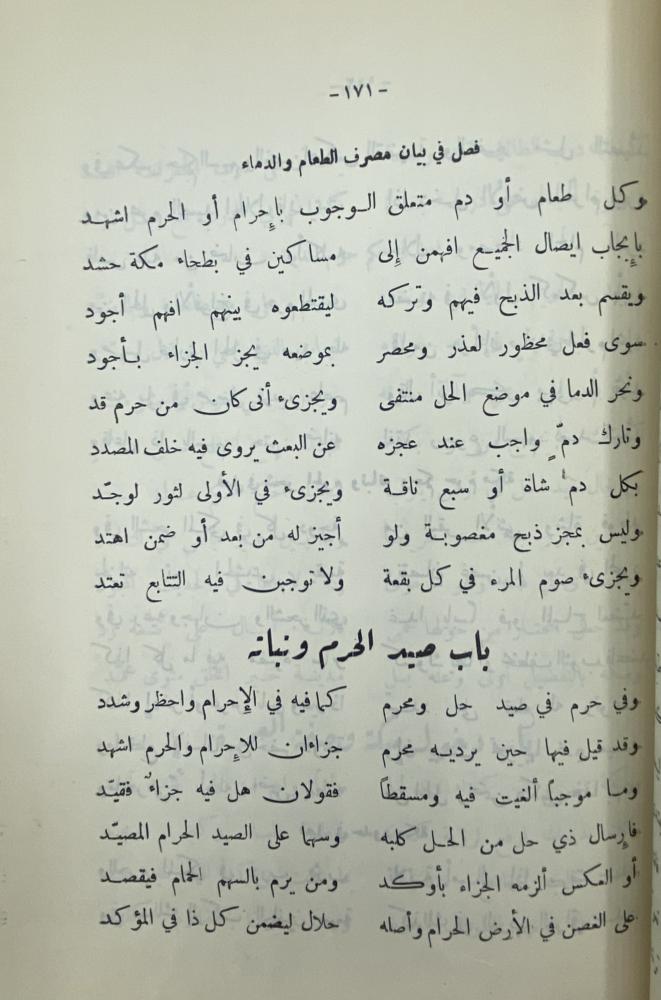 -١٧١-
فصل في بيان مصرف الطعام والدماء
وكل طعام أو دم متعلق الوجوب بإحرام أو الحرم اشهد
بإيجاب ايصال الجميع افهمن إلى مساكين في بطحاء مكة حشد
ويقسم بعد الذبح فيهم وتركه ليقتطعوه بينهم افهم أجود
سوى فعل محظور لعذر ومحصر بموضعه يجز الجزاء بأجود
ونحر الدما في موضع الحل منتفى ويجزىء أنى كان من حرم قد
وتارك دمّ واجب عند عجزه عن البعث يروى فيه خلف المصدد
بكل دم شاة أو سبع ناقة ويجزىء في الأولى لثور لوجّد
وليس بمجز ذبح مغصوبة ولو أجيز له من بعد أو ضمن اهتد
ويجزىء صوم المرء في كل بقعة ولا توجبن فيه التتابع تعتد
باب صيد الحرم ونباته
وفي حرم في صيد حل ومحرم كما فيه في الإحرام واحظر وشدد
وقد قيل فيها حين يرديه محرم جزاءان للإحرام والحرم اشهد
وما موجباً ألغيت فيه ومسقطاً فقولان هل فيه جزاءٌ فقيّد
فإرسال ذي حل من الحل كلبه وسهما على الصيد الحرام المصيّد
أو العكس ألزمه الجزاء بأوكد ومن يرم بالسهم الحمام فيقصد
على الغصن في الأرض الحرام وأصله حلال ليضمن كل ذا في المؤكد